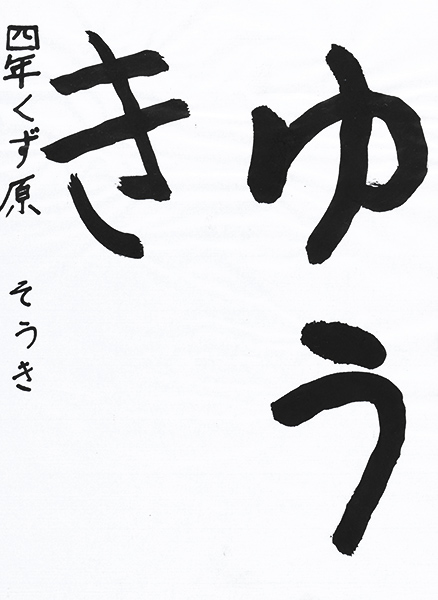 ゆう
き
四年くず原 そうき